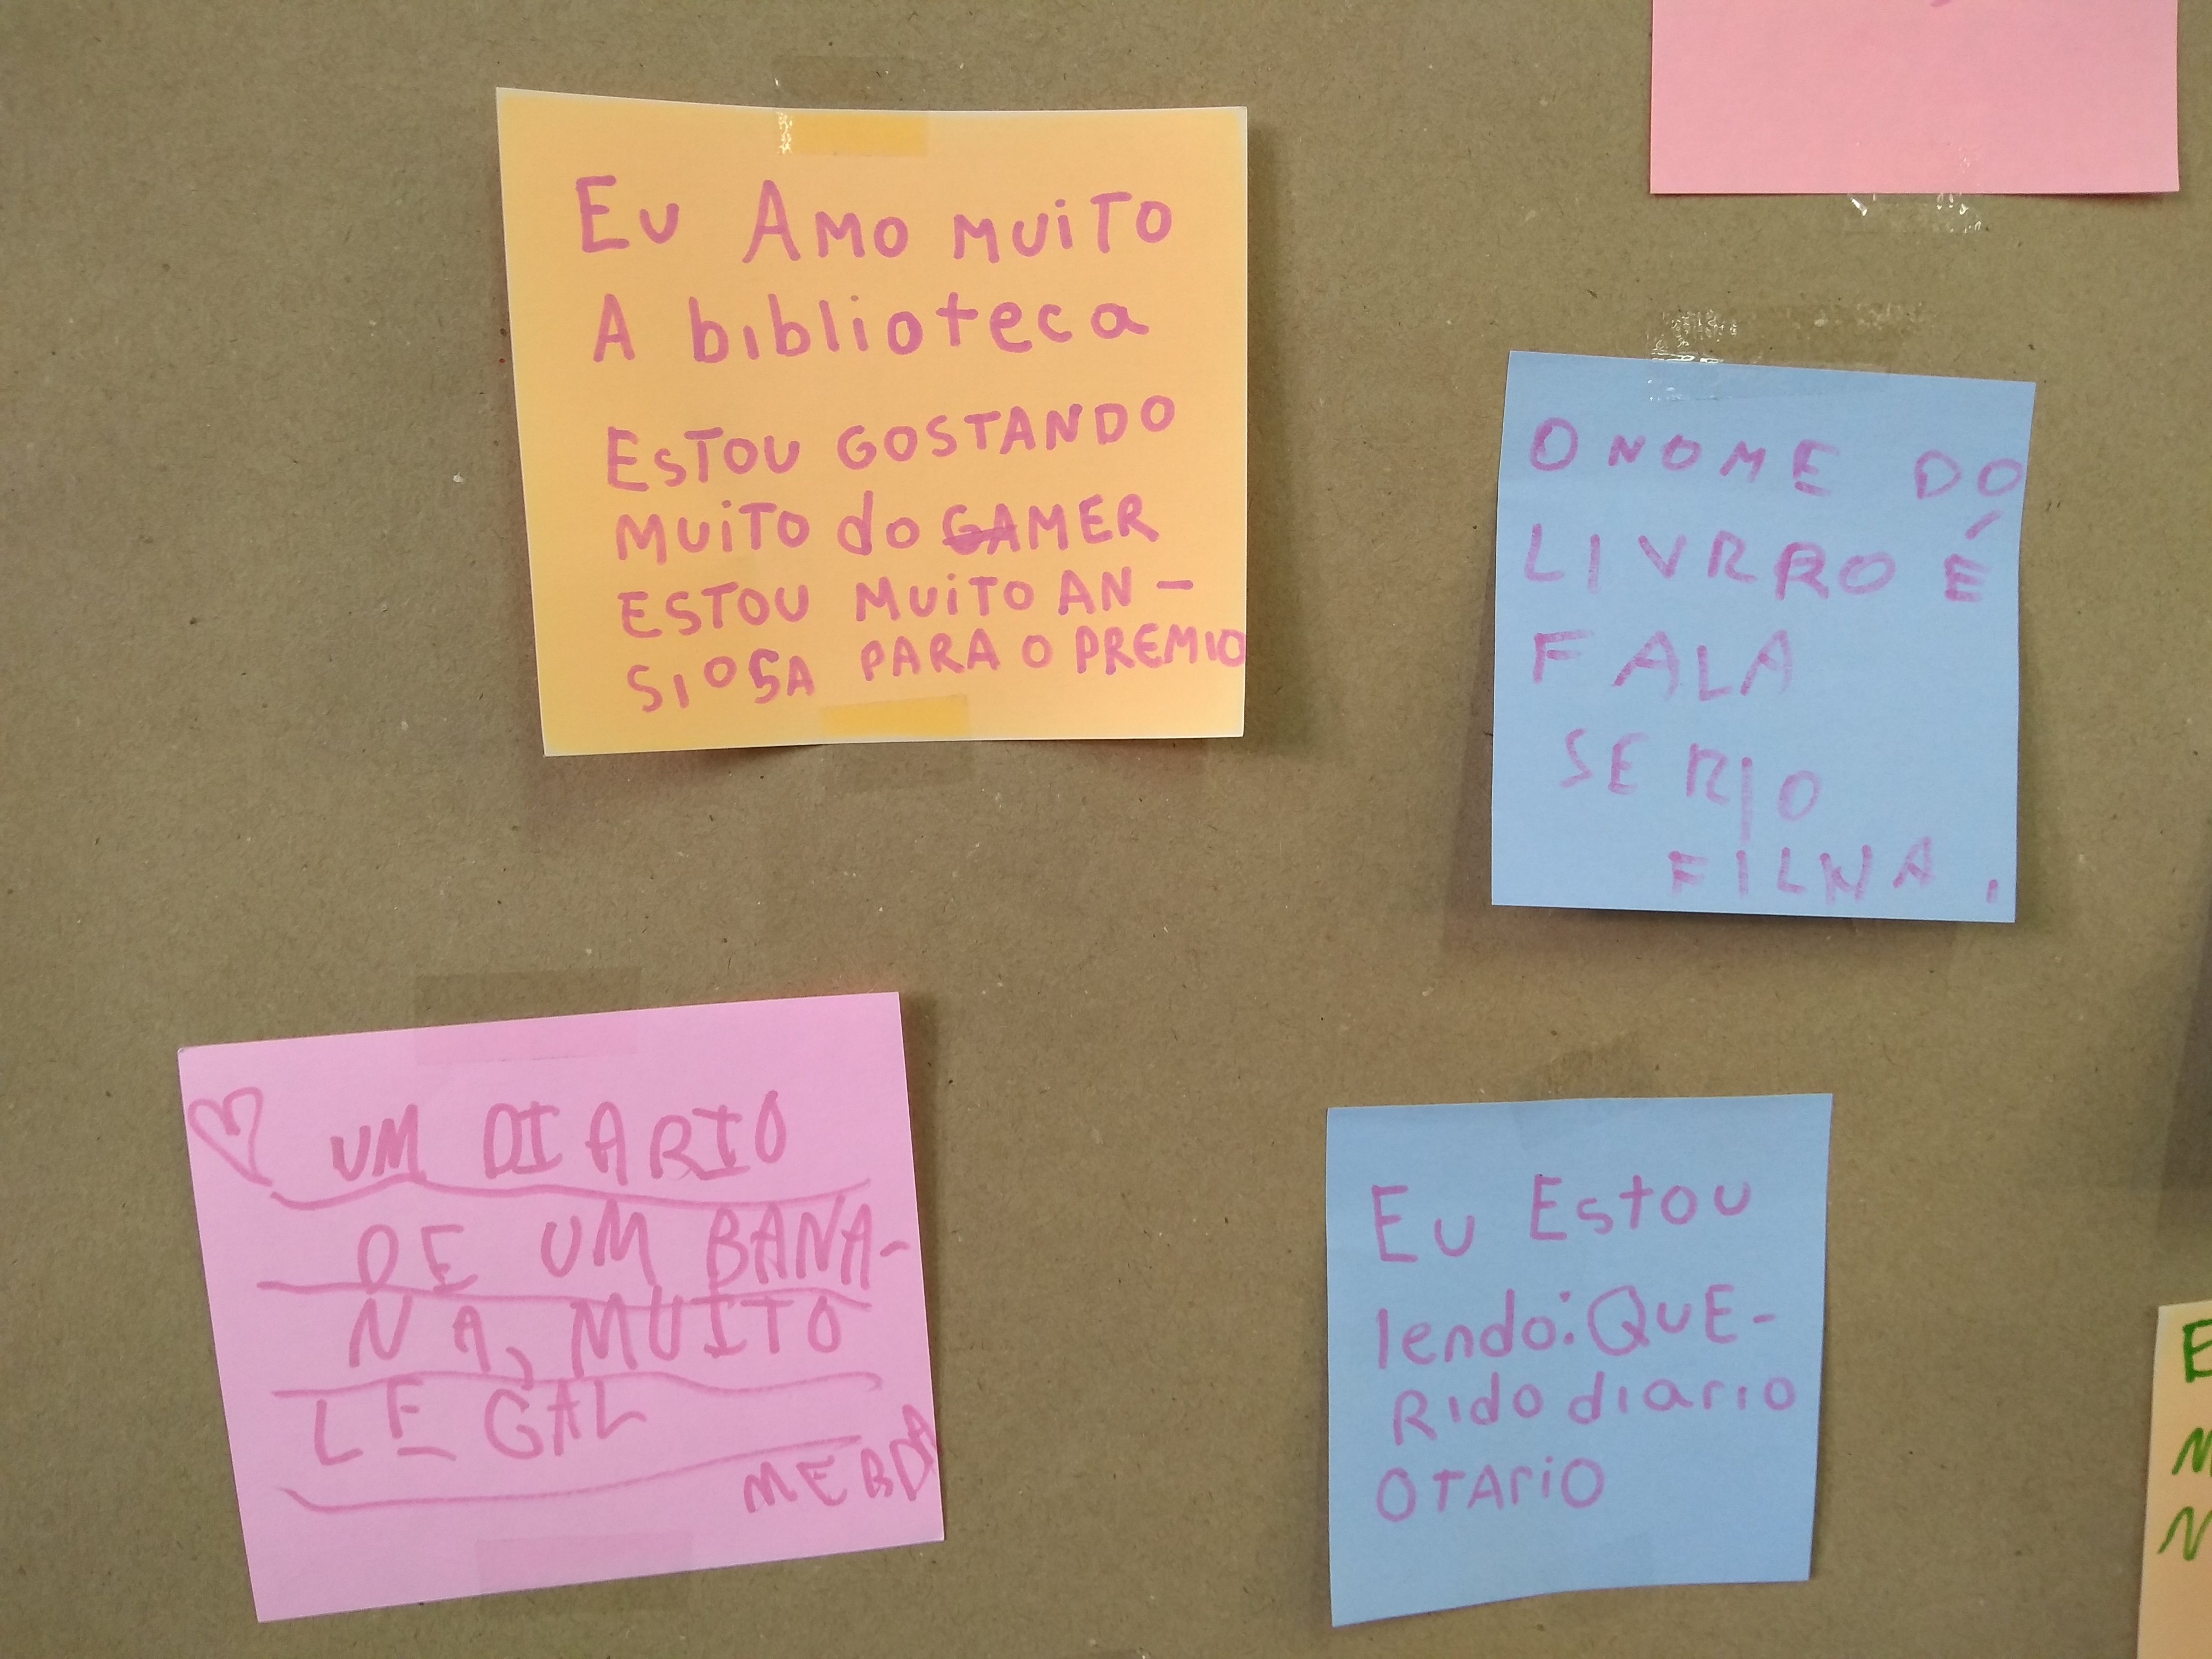 Eu AMO MUiTO
A biblioteca
ESTOU GOSTANDO
MUiTO do GAMER
ESTOU MUiTO AN-
SIOSA PARA O PREMIO
O NOME DO
LIVRRO É
FALA
SERIO
FILHA.
UM DIARIO
DE UM BANA-
NA, MUITO
LEGAL
MERDA
Eu Estou
lendo: QUE-
Rido diario
OTAriO
E